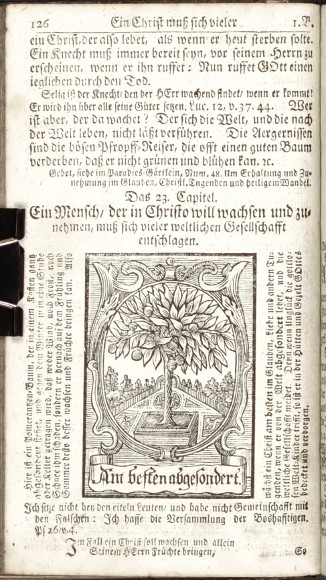 126 Ein Christ muß sich vieler 1. B.
ein Christ, der also lebet, als wenn er heut sterben solte.
Ein Knecht muß immer bereit seyn, vor seinem Herrn zu
erscheinen, wenn er ihn ruffet: Nun ruffet GOtt einen
ieglichen durch den Tod.
Selig ist der Knecht, den der HErr wachend findet, wenn er kommt!
Er wird ihn über alle seine Güter setzen, Luc. 12, v. 37. 44. Wer
ist aber, der da wachet? Der sich die Welt, und die nach
der Welt leben, nicht läßt verführen. Die Aergernissen
sind die bösen Pfropff-Reiser, die offt einen guten Baum
verderben, daß er nicht grünen und blühen kan. ꝛc.
Gebet, siehe im Paradies-Gärtlein, Num. 48. Um Erhaltung und Zu-
nehmung im Glauben, Christl. Tugenden und heiligem Wandel.
Das 23. Capitel.
Ein Mensch, der in Christo will wachsen und zu-
nehmen, muß sich vieler weltlichen Gesellschafft
entschlagen.
Hier ist ein Pomerantzen-Baum, der in einen Kasten gantz
abgesondert stehet, und gegen dem Winter in eine Stube
oder Keller getragen wird, daß weder Wind, noch Frost, noch
Schnee ihm schaden, sondern er hernach auf dem Frühling und
Sommer desto besser wachsen und Früchte bringen kan. Also
Am besten abgesondert.
ist ein Christ am besten im Glauben, Liebe und andern Tu-
genden, wenn er von der Welt abgesondert lebet, und die
weltliche Gesellschafft meidet. Denn wenn Unglück die gottlo-
sen Welt-Kinder trifft, so ist er in der Hütten und Gezelt GOttes
bedeckt und verborgen.
Ich sitze nicht bey den eiteln Leuten, und habe nicht Gemeinschafft mit
den Falschen: Ich hasse die Versammlung der Boßhafftigen.
Ps 26 v. 4.
Im Fall ein Christ soll wachsen und allein
Seinem HErrn Früchte bringen,
So